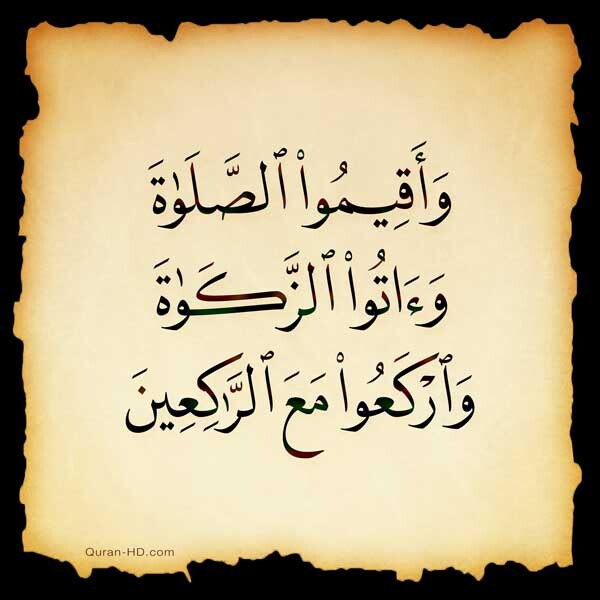 وَأَقِيمُوا۟ ٱلصَّلَوٰةَ
وَءَاتُوا۟ ٱلزَّكَوٰةَ
وَٱرْكَعُوا۟ مَعَ ٱلرَّٰكِعِينَ
Quran-HD.com